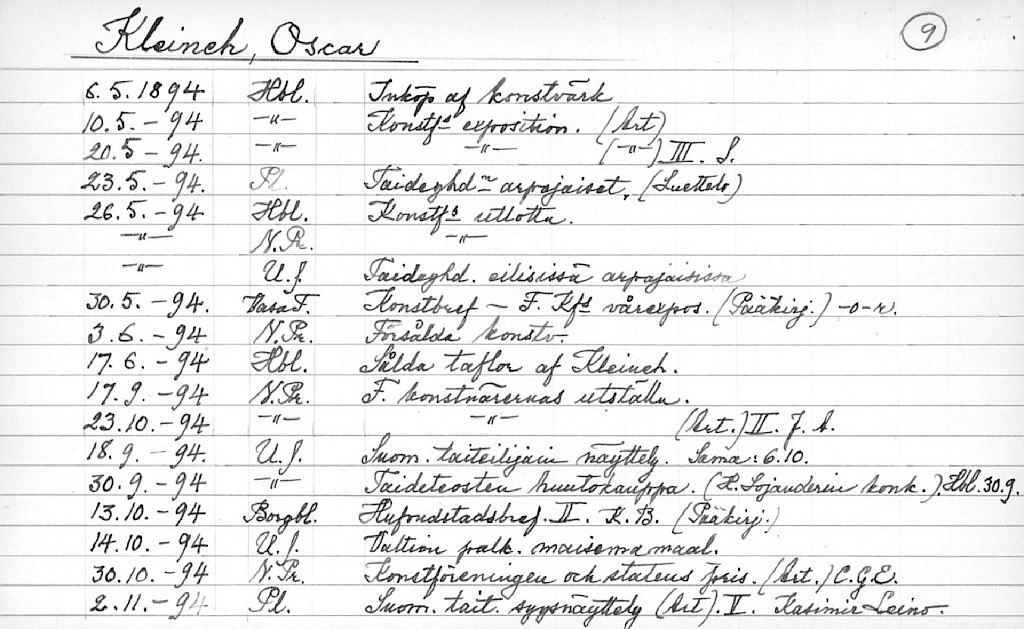 Kleineh, Oscar 9
6.5.1894 Hbl. Inköp af konstvärk
10.5.-94 -"- Konstfs exposition. (Art)
20.5-94. -"- -"- (-"-) III. S.
23.5.-94. Pl. Taideyhdn arpajaiset. (Luettelo)
26.5.-94. Hbl. Konstfs utlottn.
-"- N.Pr. -"-
-"- U.S. Taideyhd. eilisissä arpajaisissa
30.5.-94. Vasa T. Konstbref - F. Kfs vårexpos. (Pääkirj.) -o-r.
3.6.-94 N.Pr. Försålda konstv.
17.6.-94 Hbl. Sålda taflor af Kleineh.
17.9.-94 N.Pr. F. konstnärernas utställn.
23.10.-94 -"- -"- (Art.) II. J. A.
18.9.-94. U.S. Suom. taiteilijain näyttely. Sama: 6.10.
30.9.-94 -"- Taideteosten huutokauppa. (H. Lojanderin konk.). Hbl. 30.9.
13.10.-94 Borgbl. Hufvudstadsbref. II. K.B. (Pääkirj.)
14.10.-94 U.S. Valtion palk. maisemamaal.
30.10.-94 N.Pr. Konstföreningen och statens pris. (Art.) C.G.E.
2.11.-94 Pl. Suom. tait. syysnäyttely (Art). V. Kasimir Leino.